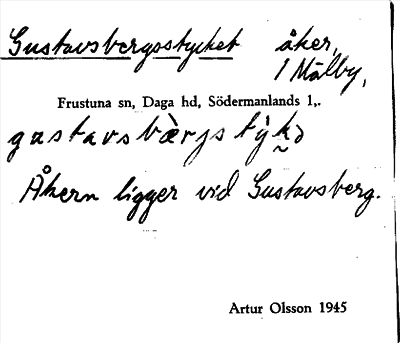 Gustavsbergsstycket åker,
1 Målby,
Frustuna sn, Daga hd, Södermanlands l,.
gustavsbærjstýkə
Åkern ligger vid Gustavsberg.
Artur Olsson 1945